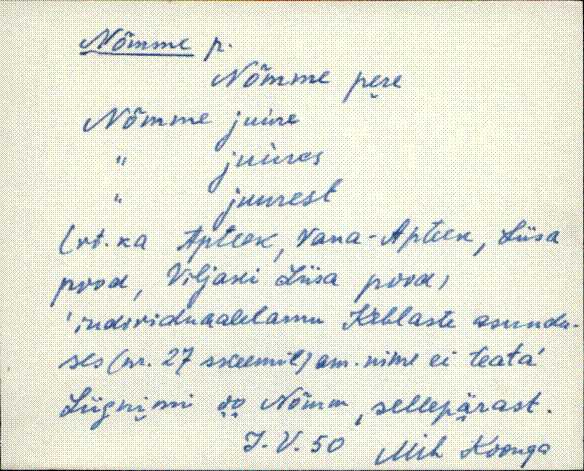 Nõmme p.
Nõmme pere
Nõmme juure
" juures
" juurest
(vt. ka Apteek, Vana-Apteek, Liisa
pood, Viljandi Liisa pood)
'individuaalelamu Keblaste asundu-
ses (nr. 27 skeemil) am. nime ei teata'
Liignimi oo Nõmm, sellepärast.
I.V.50 Mih Koonga